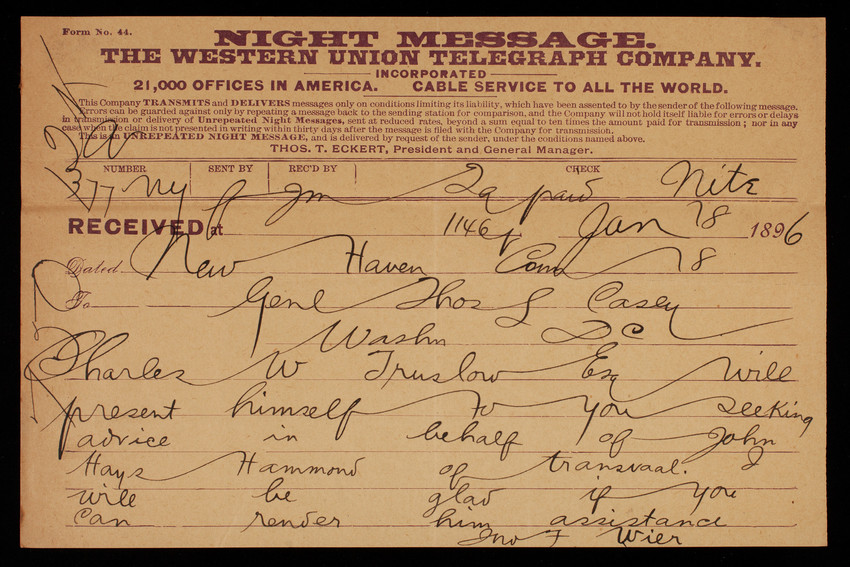 Form No. 44.
NIGHT MESSAGE.
THE WESTERN UNION TELEGRAPH COMPANY.
INCORPORATED
21,000 OFFICES IN AMERICA. CABLE SERVICE TO ALL THE WORLD.
This Company TRANSMITS and DELIVERS messages only on conditions limiting its liability, which have been assented to by the sender of the following message.
Errors can be guarded against only by repeating a message back to the sending station for comparison, and the Company will not hold itself liable for errors or delays
in transmission or delivery of Unrepeated Night Messages, sent at reduced rates, beyond a sum equal to ten times the amount paid for transmission; nor in any
case when the claim is not presented in writing within thirty days after the message is filed with the Company for transmission.
This is an UNREPEATED NIGHT MESSAGE, and is delivered by request of the sender, under the conditions named above.
THOS. T. ECKERT, President and General Manager.
NUMBER SENT BY REC'D BY CHECK
377 Ny Jm paid Nite
RECEIVED at 1146 Jan 18 1896
Dated New Haven Conn 18
To Genl Thos L Casey
Washn DC
Charles W Truslow Esq will
present himself to you seeking
advice in behalf of John
Hays Hammond of transvaal. I
will be glad if you
can render him assistance
Jno F Wier